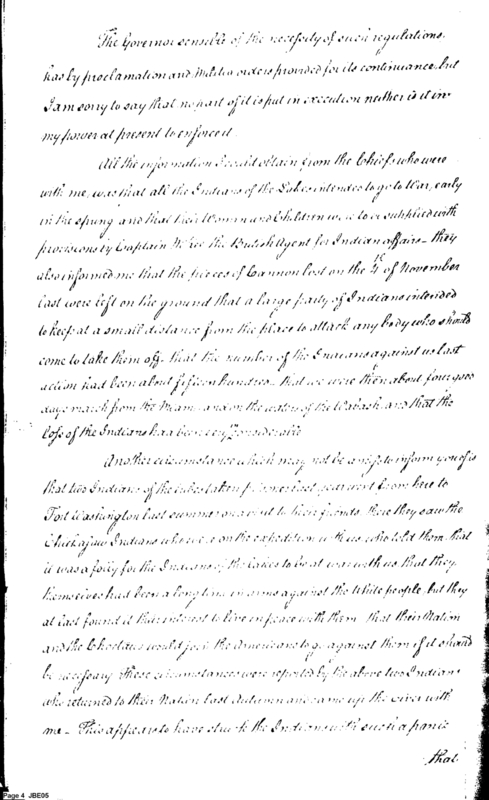 The Governor sensible of the necessity of such regulations,
has by proclamation and Militia orders provided for its continuance, but
I am sorry to say that no part of it is put in execution neither is it in
my power at present to enforce it
All the information I could obtain from the Chiefs who were
with me, was that all the Indians of the Lakes intended to go to War, early
in the spring and that their Women and Children were to be supplied with
provisions by Captain the British Agent for Indian affairs — they
also informed me that the pieces of Cannon lost on the 4th of November
last were left on the ground that a large party of Indians intended
to keep at a small distance from the place to attack any body who should
come to take them off. that the number of the Indians against us last
action had been about fifteen hundred — that we were then about four good
days march from the Miami and on the waters of the Wabash and that the
loss of the Indians had been very considerable
Another circumstance which may not be amiss to inform you of is
that two Indians of the tribes taken prisoners last year went from here to
Fort Washington last summer on a visit to their friends. there they saw the
Chickasaw Indians who were on the expedition with us who told them that
it was a folly for the Indians of the Lakes to be at war with us that they
themselves had been a long time in arms against the White people, but they
at last found it their interest to live in peace with them that their Nation
and the Choctaws would join the Americans to go against them if it should
be necessary These circumstances were reported by the above two Indians
who returned to their Nation last Autumn and came up the river with
me — This appears to have struck the Indians with such a panic
that
Page 4 JBE05